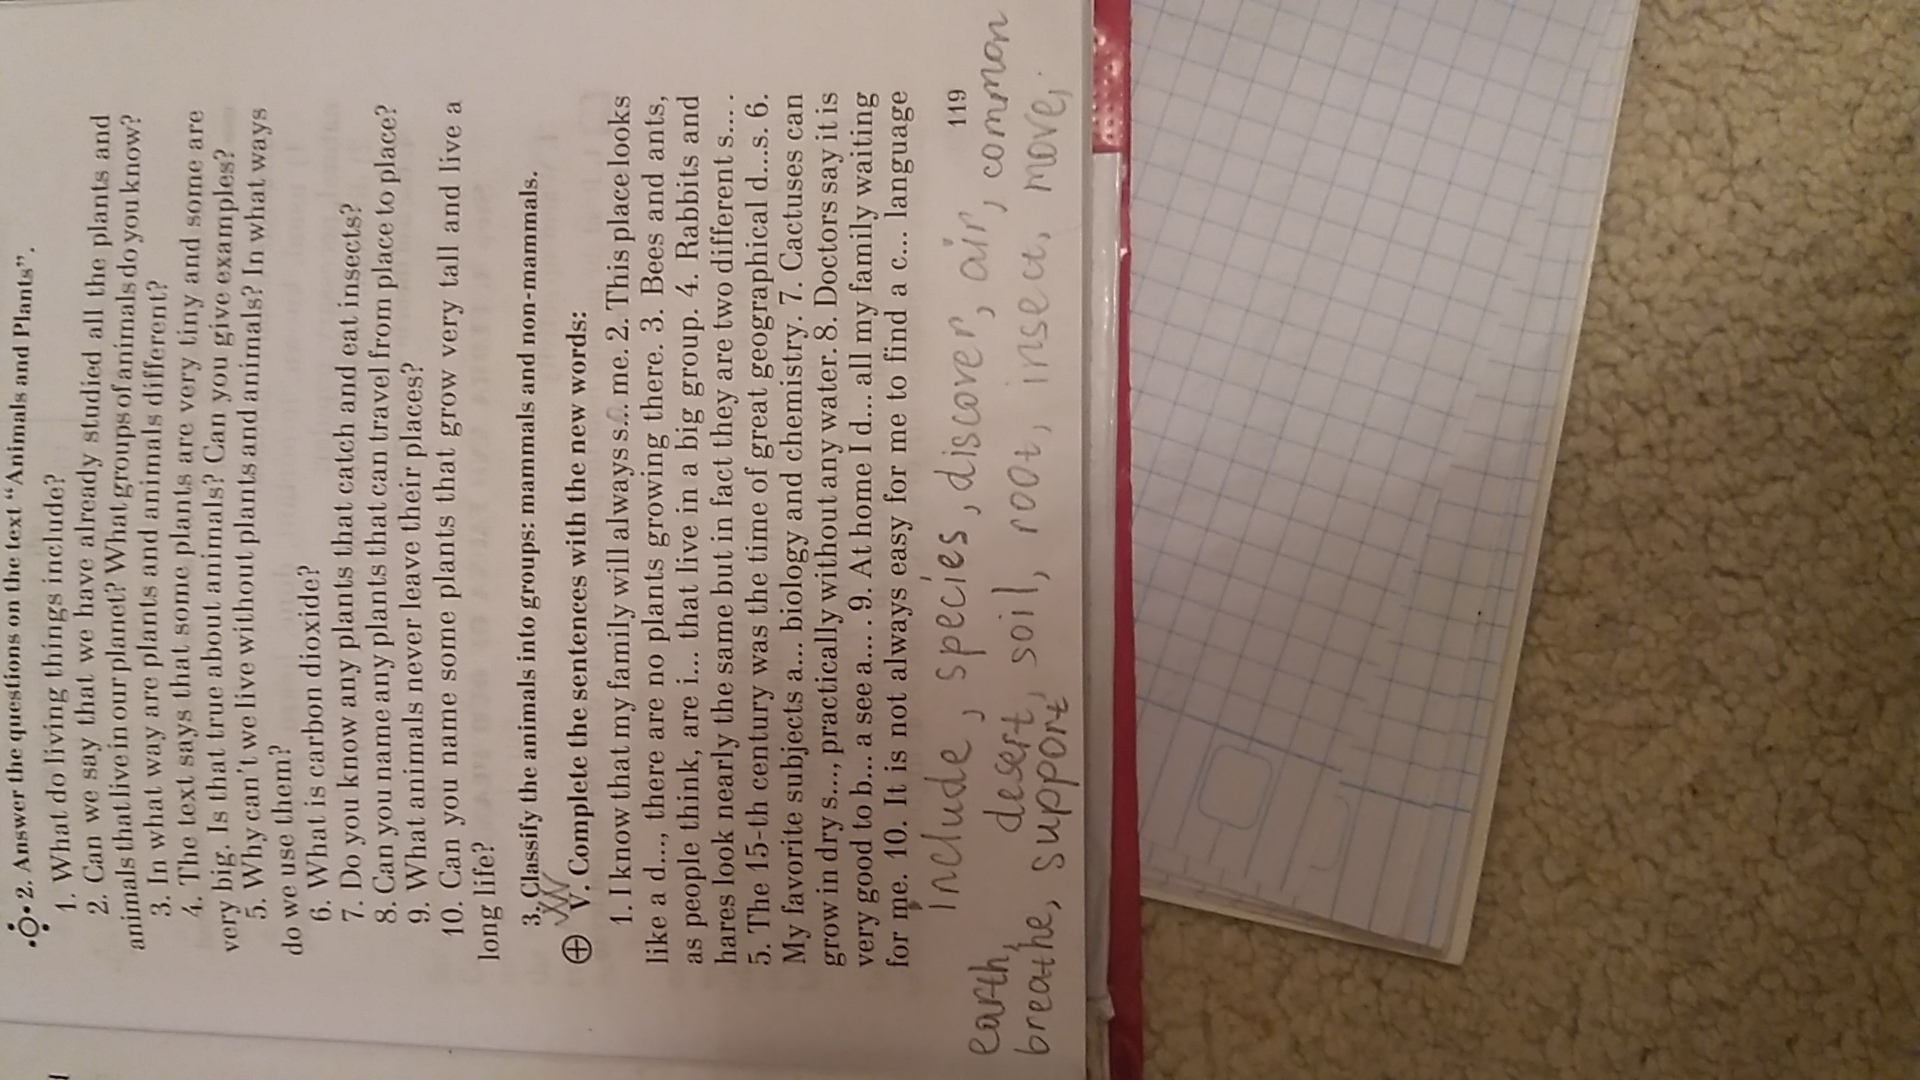 2. Answer the questions on the text “Animals and Plants”.
1. What do living things include?
2. Can we say that we have already studied all the plants and
animals that live in our planet? What groups of animals do you know?
3. In what way are plants and animals different?
4. The text says that some plants are very tiny and some are
very big. Is that true about animals? Can you give examples?
5. Why can't we live without plants and animals? In what ways
do we use them?
6. What is carbon dioxide?
7. Do you know any plants that catch and eat insects?
8. Can you name any plants that can travel from place to place?
9. What animals never leave their places?
10. Can you name some plants that grow very tall and live a
long life?
3. Classify the animals into groups: mammals and non-mammals.
V. Complete the sentences with the new words:
1. I know that my family will always s... me. 2. This place looks
like a d..., there are no plants growing there. 3. Bees and ants,
as people think, are i... that live in a big group. 4. Rabbits and
hares look nearly the same but in fact they are two different s... .
5. The 15-th century was the time of great geographical d...s. 6.
My favorite subjects a... biology and chemistry. 7. Cactuses can
grow in dry s..., practically without any water. 8. Doctors say it is
very good to b... a see a... . 9. At home I d... all my family waiting
for me. 10. It is not always easy for me to find a c... language
119
include, species, discover, air, common
earth, desert, soil, root, insect, move,
breathe, support